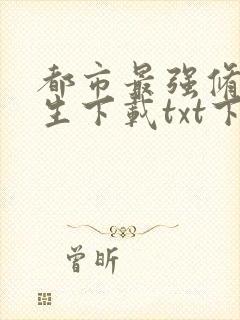 都市最强修
生下载txt下
曾昕